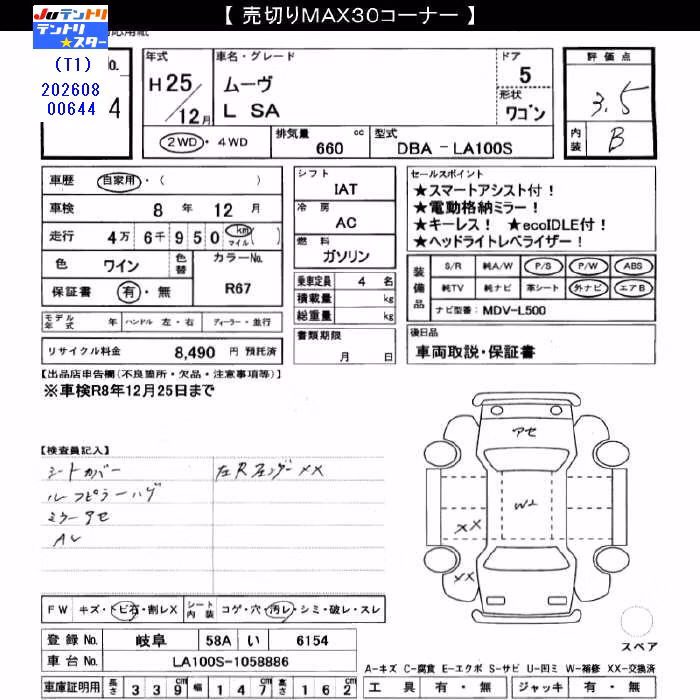 【 売切りMAX30コーナー 】
JUテントリ
テントリ★スター
応用紙
(T1)
202608
00644
No.
4
年式
H25/12月
車名・グレード
ムーヴ
L SA
ドア
5
形状
ワゴン
評価点
3.5
内装
B
2WD・4WD
排気量 cc
660
型式
DBA - LA100S
車歴 自家用・( )
車検 8 年 12 月
走行 4万 6千 9 5 0 km マイル ( )
色 ワイン 色替
カラーNo.
R67
保証書 有・無
モデル年式 年 ハンドル 左・右 ディーラー・並行
リサイクル料金 8,490 円 預託済
シフト
IAT
冷房
AC
燃料
ガソリン
乗車定員 4 名
積載量 kg
総重量 kg
書類期限
月 日
セールスポイント
★スマートアシスト付!
★電動格納ミラー!
★キーレス! ★ecoIDLE付!
★ヘッドライトレベライザー!
装備品
S/R 純A/W P/S P/W ABS
純TV 純ナビ 革シート 外ナビ エアB
ナビ型番: MDV-L500
後日品
車両取説・保証書
【出品店申告欄(不良箇所・欠品・注意事項等)】
※車検R8年12月25日まで
【検査員記入】
シートカバー
左Rフェンダー XX
ルーフピラーハゲ
ミラーアセ
アセ
W2
XX
XX
FW キズ・トビ石・割レX シート内装 コゲ・穴・汚レ・シミ・破レ・スレ
登録No. 岐阜 58A い 6154
車台No. LA100S-1058886
車庫証明用 長さ 339cm 幅 147cm 高さ 162cm
スペア
A－キズ C－腐食 E－エクボ S－サビ U－凹ミ W－補修 XX－交換済
工具 有・無 ジャッキ 有・無